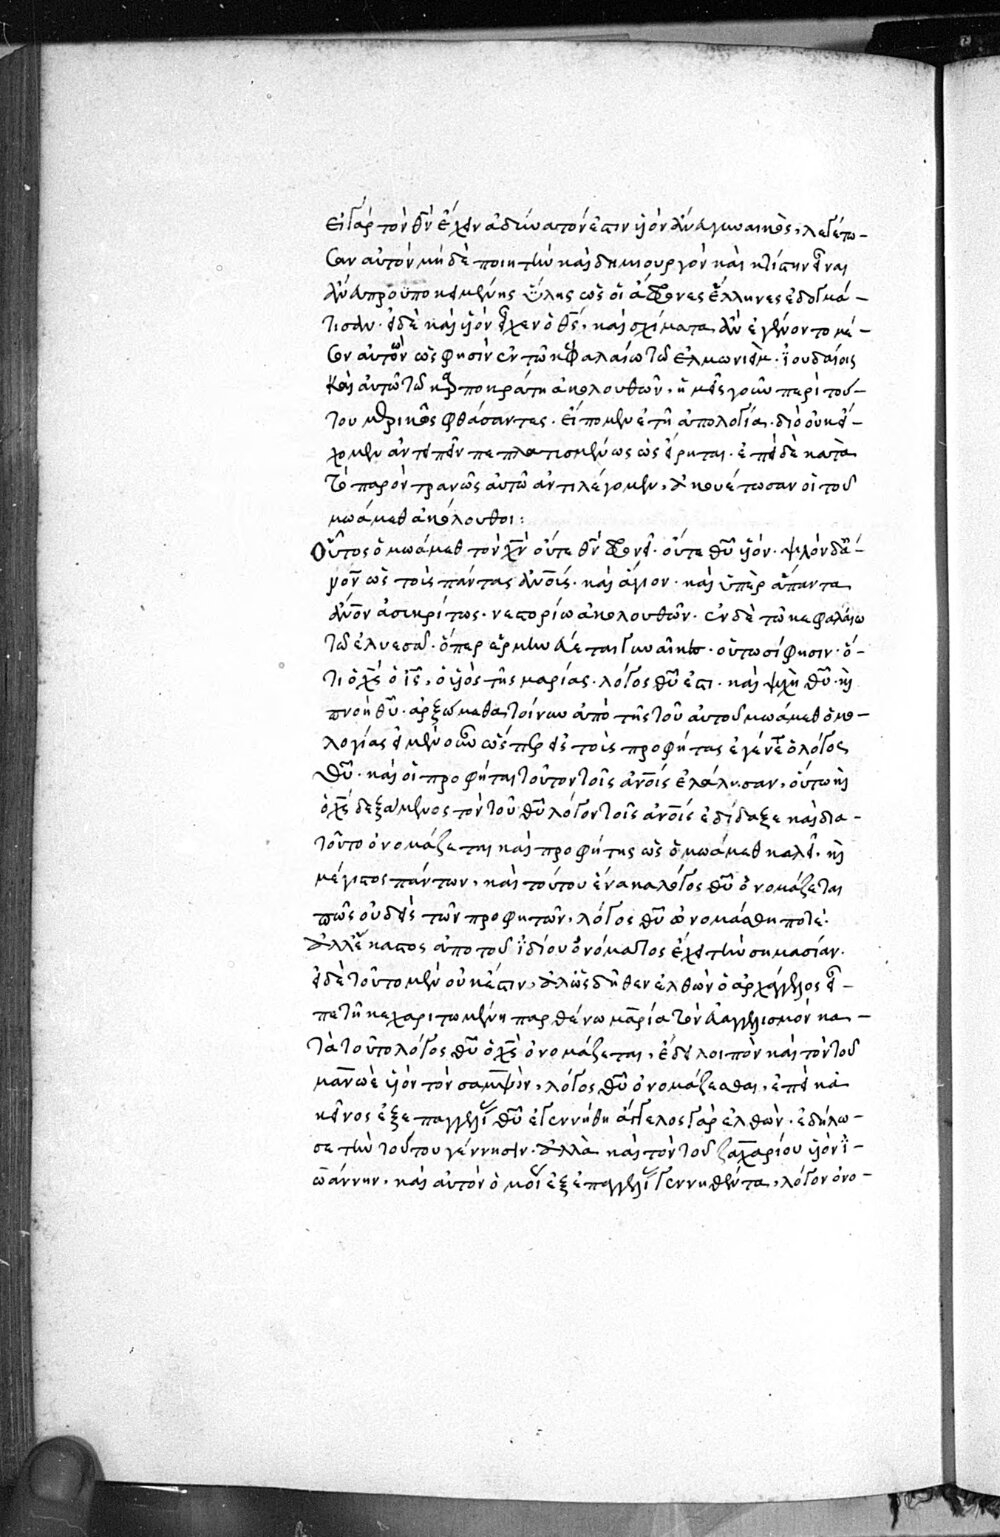 εἰ γὰρ τὸν θν̄ ἔχειν ἀδύνατόν ἐστιν υἱὸν ἄνευ γυναικός, λεγέτω-
σαν αὐτὸν μὴ δὲ ποιητὴν καὶ δημιουργὸν καὶ κτίστην εἶναι
ἄνευ προϋποκειμένης ὕλης ὡς οἱ ἄφρονες ἕλληνες ἐδογμά-
τισαν· εἰ δὲ καὶ υἱὸν εἶχεν ὁ θς̄, καὶ σχίσματα ἂν ἐγένοντο μέ-
σον αὐτῶν ὥς φησὶν ἐν τῶ κεφαλαίω τῶ ἐλμωνιέμ· ἰουδαίοις
καὶ αὐτῶ τῶ καρποκράτη ἀκολουθῶν, ἡμεῖς γοῦν περὶ τού-
του μερικῶς φθάσαντες· εἴπομεν ἐν τῆ ἀπολογία· διὸ οὐκ ἔ-
χομεν ἀντειπεῖν πεπλατυσμένως ὡς εἴρηται· ἐπεὶ δὲ κατὰ
τὸ παρὸν τρανῶς αὐτῶ ἀντιλέγομεν, ἀκουέτωσαν οἱ τοῦ
μωάμεθ ἀκόλουθοι:
Οὗτος ὁ μωάμεθ τὸν χν̄ οὔτε θν̄ φρονεῖ· οὔτε θῦ υἱόν· ψιλὸν δὲ
μόνον ὡς τοὺς πάντας ἀνούς· καὶ ἅγιον· καὶ ὑπὲρ ἅπαντα
ἄνον ἀσυγκρίτως· νεστορίω ἀκολουθῶν· ἐν δὲ τῶ κεφαλαίω
τῶ ἐλνεσᾶ· ὅπερ ἑρμηνεύεται γυναῖκες· οὑτωσί φησιν· ὅ-
τι ὁ χς̄ ὁ ις̄, ὁ υἱὸς τῆς μαρίας· λόγος θῦ ἐστι· καὶ ψυχὴ θῦ· καὶ
πνοὴ θῦ· ἀρξώμεθα τοίνυν ἀπὸ τῆς τοῦ αὐτοῦ μωάμεθ ὁμο-
λογίας εἰ μὲν οὖν ὥσπερ εἰς τοὺς προφήτας ἐγένετο ὁ λόγος
θῦ· καὶ οἱ προφῆται τοῦτον τοῖς ἀνοις ἐλάλησαν, οὕτω καὶ
ὁ χς̄ δεξάμενος τὸν τοῦ θῦ λόγον τοῖς ἀνοις ἐδίδαξε καὶ δια-
τοῦτο ὀνομάζεται καὶ προφήτης ὡς ὁ μωάμεθ καλεῖ, καὶ
μέγιστος πάντων, καὶ τούτου ἕνεκα λόγος θῦ ὀνομάζεται
πῶς οὐδεὶς τῶν προφητῶν, λόγος θῦ ὠνομάσθη ποτέ·
ἀλλ' ἕκαστος ἀπὸ τοῦ ἰδίου ὀνόματος ἔχει τὴν σημασίαν·
εἰ δὲ τοῦτο μὲν οὐκ ἔστιν, ἀλλ' ὡς δῆθεν ἐλθὼν ὁ ἀρχάγγελος εἶ-
πε τῆ κεχαριτωμένη παρθένω μαρία τὸν εὐαγγελισμὸν κα-
τὰ τοῦτο λόγος θῦ ὁ χς̄ ὀνομάζεται, ἔδει λοιπὸν καὶ τὸν τοῦ
μανωὲ υἱὸν τὸν σαμψὼν, λόγος θῦ ὀνομάζεσθαι, ἐπεὶ κἀ
κεῖνος ἐξ ἐπαγγελίας θῦ ἐγεννήθη ἄγγελος γὰρ ἐλθὼν· ἐδήλω-
σε τὴν τούτου γέννησιν· ἀλλὰ καὶ τὸν τοῦ ζαχαρίου υἱὸν ἰ-
ωάννην, καὶ αὐτὸν ὁμοίως ἐξ ἐπαγγελίας γεννηθέντα, λόγον ὀνο-